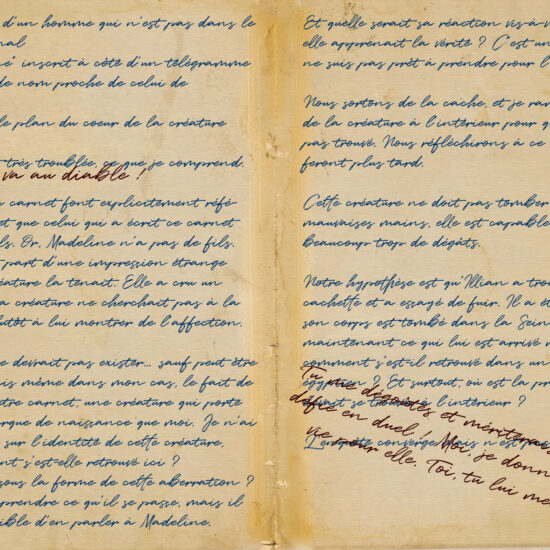 d'un homme qui n'est pas dans le
nal
é" inscrit à côté d'un télégramme
de nom proche de celui de
le plan du coeur de la créature
très troublée, ce que je comprend.
va au diable !
carnet font explicitement réfé-
et que celui qui a écrit ce carnet
ls. Or, Madeline n'a pas de fils.
part d'une impression étrange
éature la tenait. Elle a cru un
a créature ne cherchait pas à la
lutôt à lui montrer de l'affection.
e devrait pas exister... sauf peut être
is même dans mon cas, le fait de
tre carnet, une créature qui porte
rque de naissance que moi. Je n'ai
sur l'identité de cette créature,
nt s'est-elle retrouvé ici ?
sous la forme de cette aberration ?
prendre ce qu'il se passe, mais il
ible d'en parler à Madeline.
Et quelle serait sa réaction vis-à-v
elle apprenait la vérité ? C'est un
ne suis pas prêt à prendre pour l'
Nous sortons de la cache, et je ran
de la créature à l'intérieur pour qu
pas trouvé. Nous réfléchirons à ce
feront plus tard.
Cette créature ne doit pas tomber
mauvaises mains, elle est capable
beaucoup trop de dégâts.
Notre hypothèse est qu'Illian a trou
cachette et a essayé de fuir. Il a ét
son corps est tombé dans la Sein
maintenant ce qui lui est arrivé
comment s'est-il retrouvé dans un
égyptien ? Et surtout, où est la pr
devait se trouver à l'intérieur ?
Tu me dégoûtes et mériterais
défié en duel ! Moi, je donn
vie pour elle. Toi, tu lui me
converge mais n'est pas